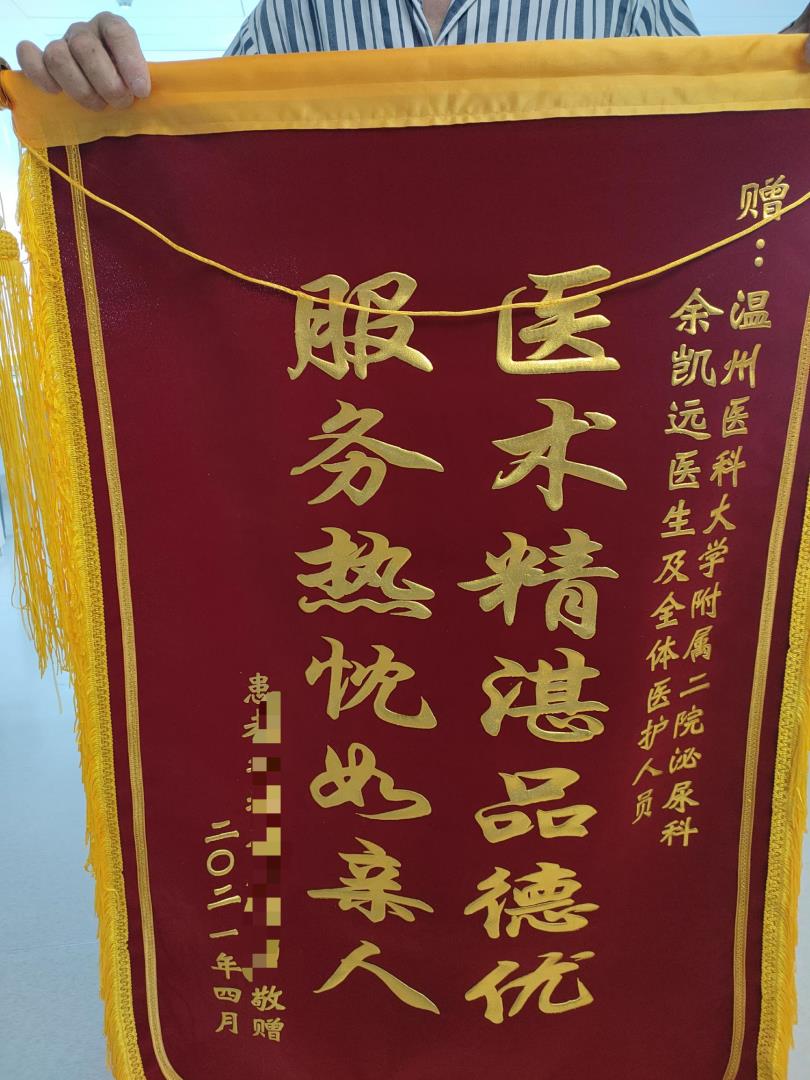 赠：
温州医科大学附属二院泌尿科
余凯远医生及全体医护人员
医术精湛品德优
服务热忱如亲人
患者 敬赠
二〇二一年四月